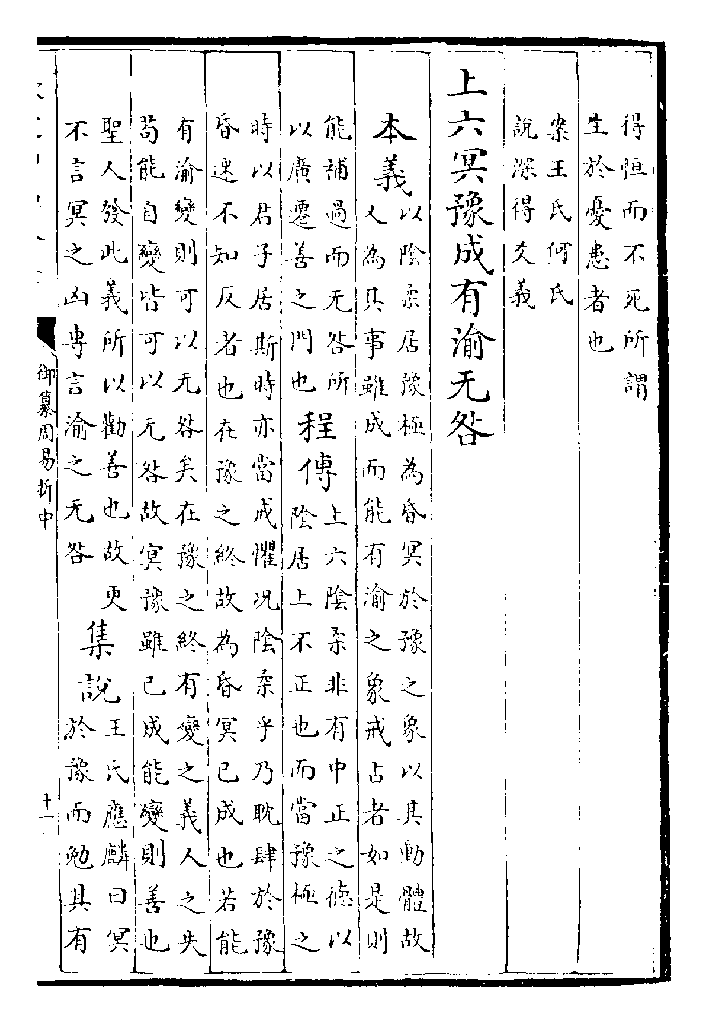 得恒而不死所謂
生於憂患者也
案王氏何氏
說深得爻義
上六冥豫成有渝无咎
本義
以陰柔居豫極為昏冥於豫之象以其動體故
又為其事雖成而能有渝之象戒占者如是則
能補過而无咎所
以廣遷善之門也
程傳
上六陰柔非有中正之徳以
陰居上不正也而當豫極之
時以君子居斯時亦當戒懼况陰柔乎乃耽肆於豫
昏迷不知反者也在豫之終故為昏冥已成也若能
有渝變則可以无咎矣在豫之終有變之義人之失
苟能自變皆可以无咎故冥豫雖已成能變則善也
聖人發此義所以勸善也故更
不言冥之凶專言渝之无咎
集說
王氏應麟曰冥
於豫而勉其有
御纂周易折中
十一